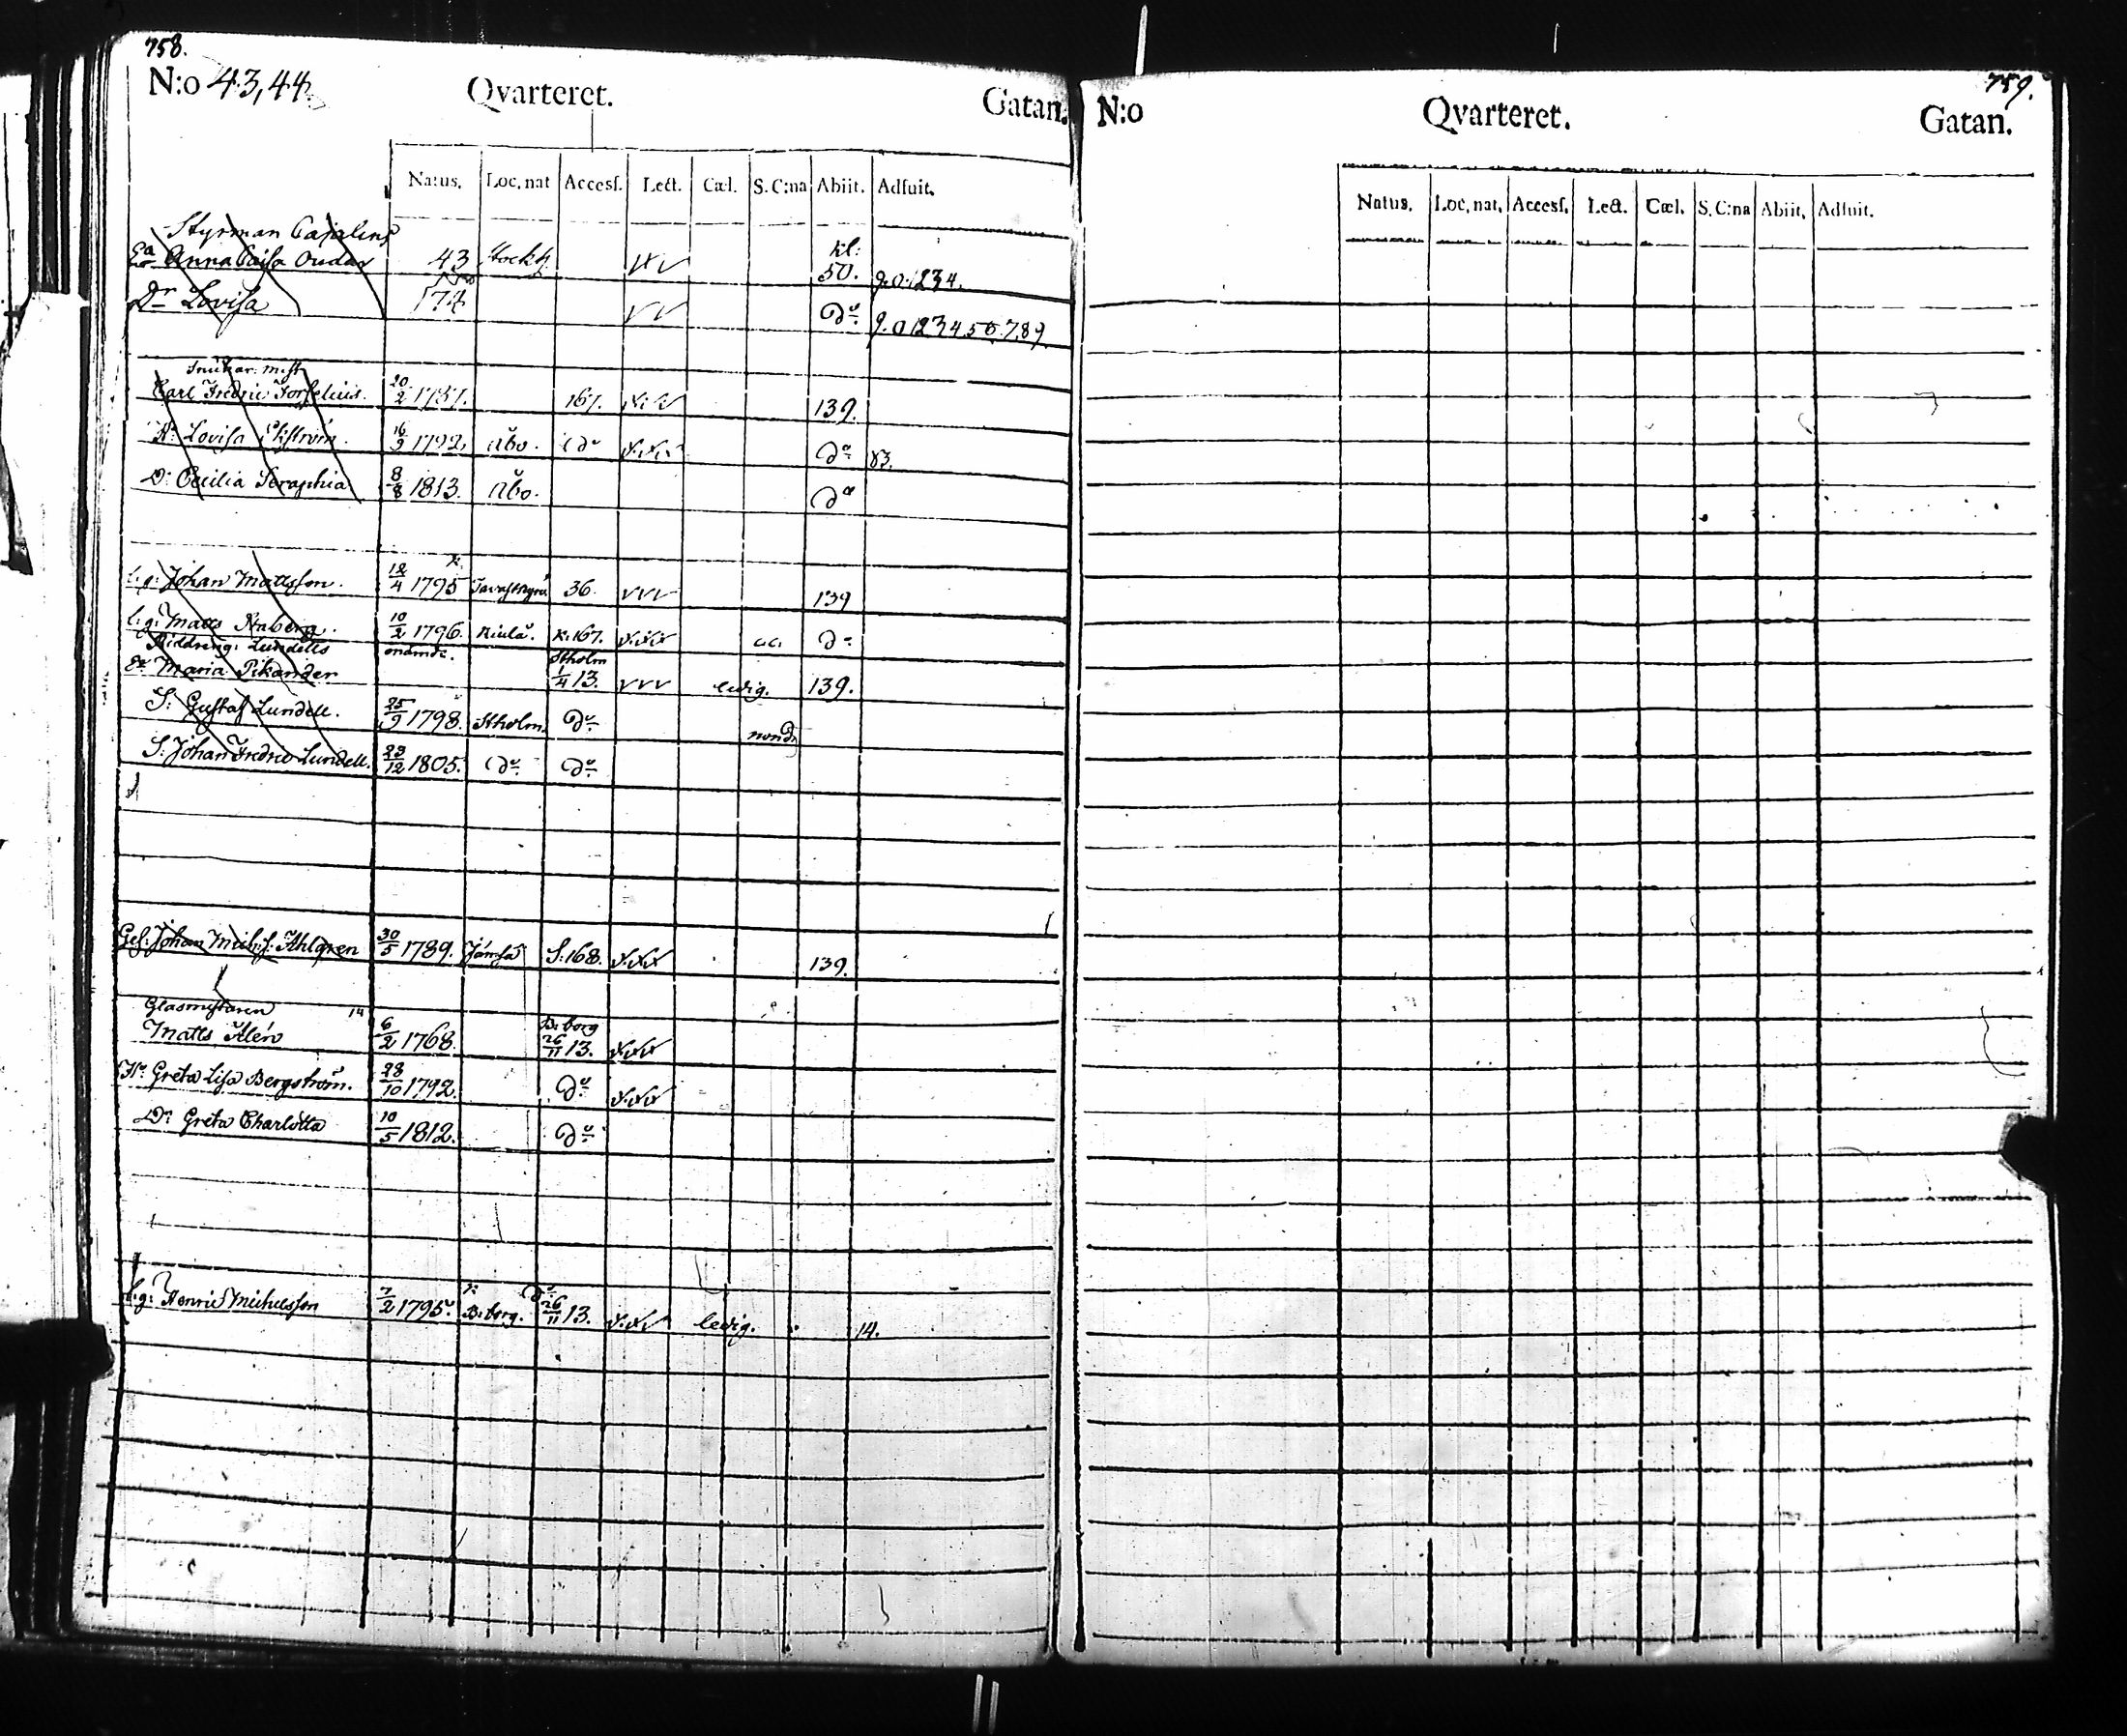 758.
N:o 43,44. Qvarteret. Gatan.
Natus. Loc. nat Accesſ. Lect. Cæl. S. C:na Abiit. Adfuit.
Styrman
Anna Caisa 43 Stockh. kl: 50. 9.0.1234.
Dr Lovisa 74 do 9.01234.56.789.
Carl Fredric Forselius. 20/2 1757. 167. 139.
H: Lovisa Ekström. 16/9 1792. Åbo. do do 13.
D: Cecilia Seraphia 8/8 1813. Åbo. do
l:g: Johan Mattsson. 12/4 1795 36. 139
l:g: Matts 10/2 1796. k:167. do
Lundells
Maria Pikander Stholm 1/4 13. ledig. 139.
S: Gustaf Lundell. 25/9 1798. Stholm. do
S: Johan Fredric Lundell. 23/12 1805. do do
Ges: Johan Mich:s: Ahlgren 30/5 1789. Jämsä S:168. 139.
Glasmästaren 14
Matts Alén 6/2 1768. B:borg 26/11 13.
H: Greta Lisa Bergström. 28/10 1792. do
D: Greta Charlotta 10/5 1812. do
l:g: Henric Michelsson 7/2 1795. B:borg. do 26/11 13. ledig. 14.
759.
N:o Qvarteret. Gatan.
Natus. Loc, nat, Accesſ. Lect. Cæl. S, C:na Abiit, Adfuit.